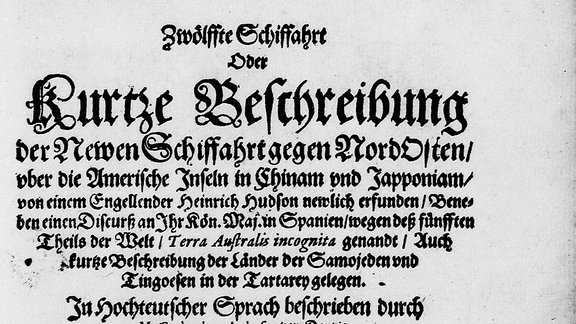 Zwölffte Schiffahrt
Oder
Kurtze Beschreibung
der Newen Schiffahrt gegen NordOsten/
vber die Amerische Inseln in Chinam vnd Japponiam/
von einem Engellender Heinrich Hudson newlich erfunden/ Bene-
ben einen Discurß an Ihr Kön. Maj. in Spanien/ wegen deß fünfften
Theils der Welt/ Terra Australis incognita genandt/ Auch
kurtze Beschreibung der Länder der Samojeden vnd
Tingoesen in der Tartarey gelegen.
In Hochteutscher Sprach beschrieben durch